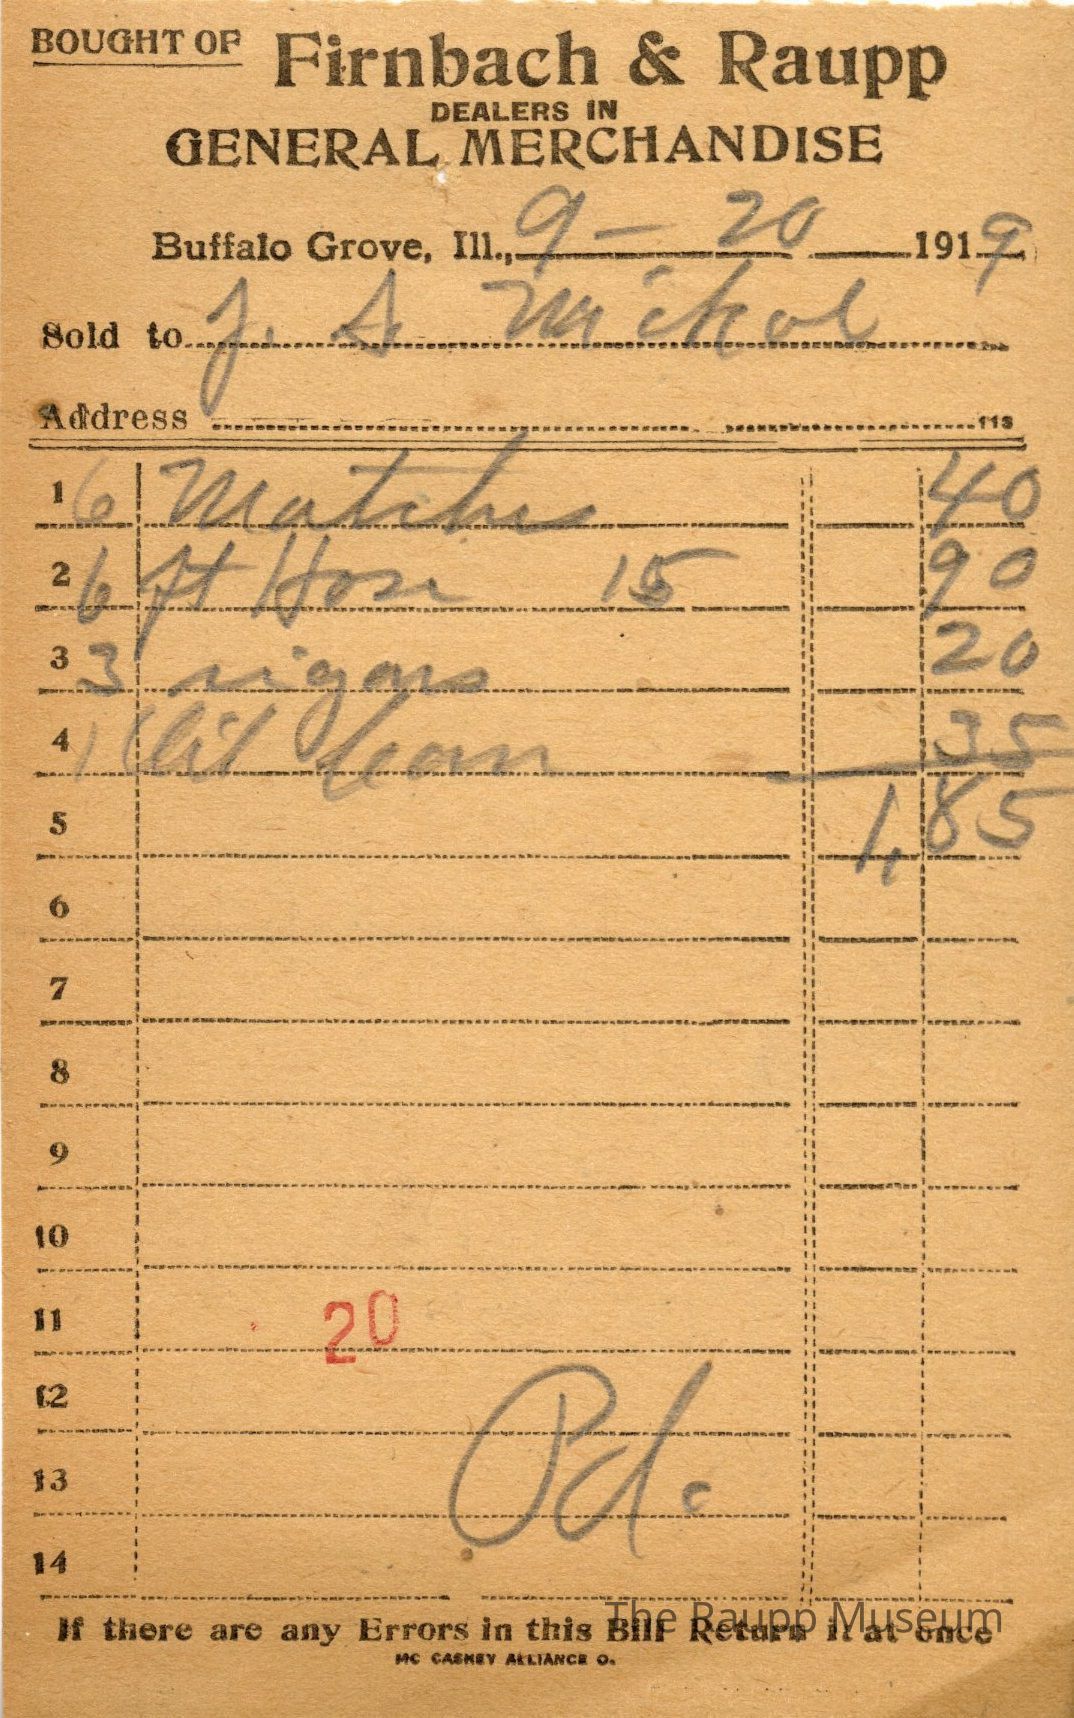 BOUGHT OF Firnbach & Raupp
DEALERS IN
GENERAL MERCHANDISE
Buffalo Grove, Ill., 9 - 20 1919
Sold to J. A Mickol
Address
113
1 6 Matches 40
2 6 ft Hose 15 90
3 3 sigars 20
4 1 Oil Can 35
5 1,85
6
7
8
9
10
11 20
12
13 Pd.
14
If there are any Errors in this Bill Return it at once
The Raupp Museum
MC CASKEY ALLIANCE O.